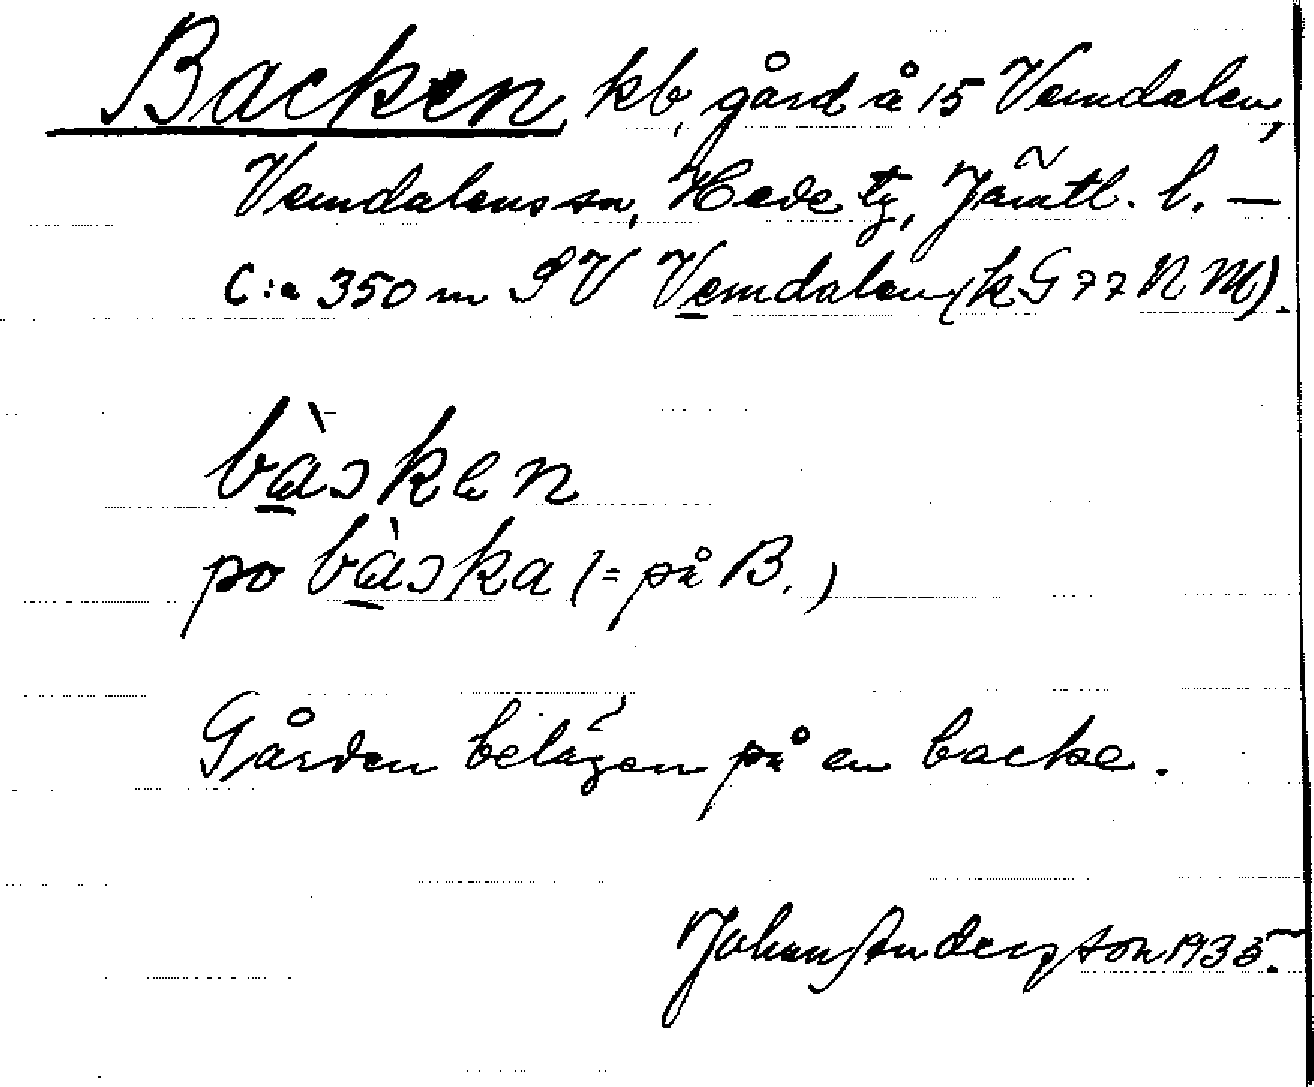 Backen, kb, gård å 15 Vemdalen,
Vemdalens sn, Hede tg, Jämtl. l. —
C:a 350 m SV Vemdalen (k G 77 N M).
bàsken
po bàska (= på B.)
Gården belägen på en backe.
Johan Anderzson 1935.